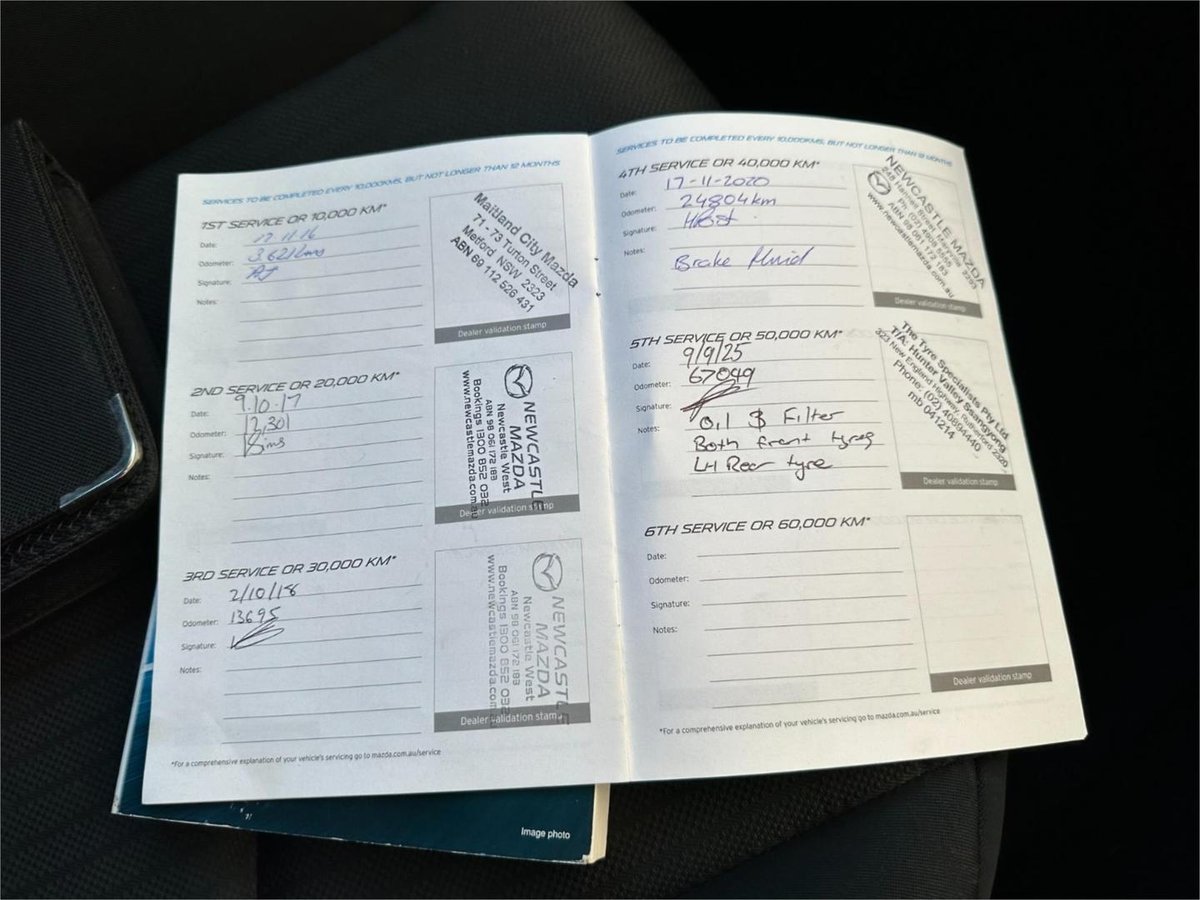 SERVICES TO BE COMPLETED EVERY 10,000KMS, BUT NOT LONGER THAN 12 MONTHS
1ST SERVICE OR 10,000 KM*
Date: 17.11.16
Odometer: 3,621kms
Signature:
Notes:
Maitland City Mazda
71 - 73 Turton Street
Metford NSW 2323
ABN 69 112 526 431
Dealer validation stamp
2ND SERVICE OR 20,000 KM*
Date: 9.10.17
Odometer: 12,301
Signature: Sims
Notes:
NEWCASTLE
MAZDA
Newcastle West
ABN 98 061 172 183
Bookings 1300 852 032
www.newcastlemazda.com.au
Dealer validation stamp
3RD SERVICE OR 30,000 KM*
Date: 2/10/18
Odometer: 13695
Signature:
Notes:
NEWCASTLE
MAZDA
Newcastle West
ABN 98 061 172 183
Bookings 1300 852 032
www.newcastlemazda.com
Dealer validation stamp
*For a comprehensive explanation of your vehicle's servicing go to mazda.com.au/service
SERVICES TO BE COMPLETED EVERY 10,000KMS, BUT NOT LONGER THAN 12 MONTHS
4TH SERVICE OR 40,000 KM*
Date: 17-11-2020
Odometer: 24804km
Signature:
Notes:
Brake fluid
NEWCASTLE MAZDA
Street, Maryville 2293
Ph: (02) 4908 8595
ABN 98 061 172 183
www.newcastlemazda.com.au
Dealer validation stamp
5TH SERVICE OR 50,000 KM*
Date: 9/9/25
Odometer: 67049
Signature:
Notes: Oil $ Filter
Both front tyres
LH Rear tyre
The Tyre Specialists Pty Ltd
T/A: Hunter Valley Ssangyong
323 New England Highway, Rutherford 2320
Phone: (02) 40894440
mb 041214
Dealer validation stamp
6TH SERVICE OR 60,000 KM*
Date:
Odometer:
Signature:
Notes:
Dealer validation stamp
*For a comprehensive explanation of your vehicle's servicing go to mazda.com.au/service
Image photo